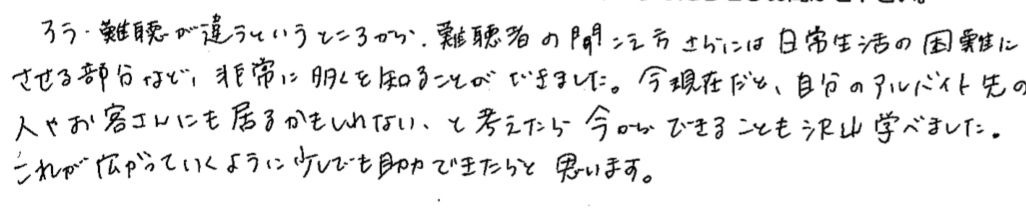 ろう・難聴が違うというところから、難聴者の聞こえ方さらには日常生活の困難に
させる部分など、非常に多くを知ることができました。今現在だと、自分のアルバイト先の
人やお客さんにも居るかもしれない、と考えたら今からできることも沢山学べました。
これが広がっていくように少しでも助力できたらと思います。